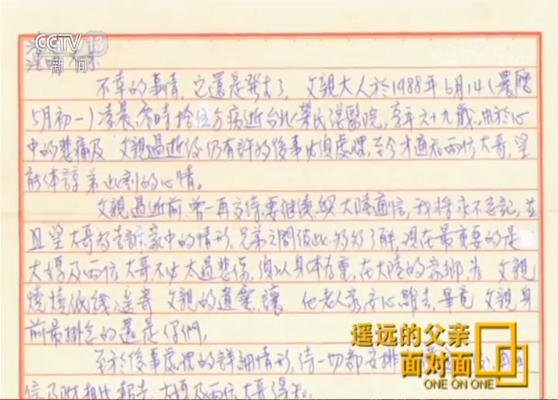 CCTV 13
新闻
不幸的事情，它還是發生了，父親大人於1988年6月14（農曆
5月初一）凌晨零時拾伍分病逝台北榮民總醫院，享年六十九歲，由於心
中的悲痛及 父親過逝後仍有許的後事必須處理，至今才通知兩位大哥，望
能体諒弟此刻的心情。
父親過逝前，曾一再交待要继续與大陸通信，我將永不忘記，並
且望大哥能告訴家中的情形，兄弟之間彼此好好了解，現在最重要的是
大媽及兩位大哥不必太過悲傷，須以身体為重，在大陸的家鄉為 父親
燒燒纸錢 父親的遺靈，讓 他老人家 離去，畢竟 父親身
前最掛念的還是你們。
至於後事處理的詳細情形，待一切都安排
信及 大媽及兩位大哥得知。
遥远的父亲
面对面
ONE ON ONE